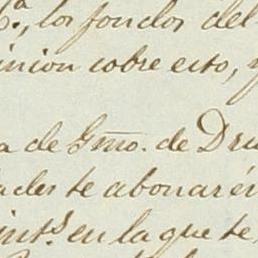 C.ª, los fondos del
inion sobre esto, y
a de Gmo. de Dru
ades te abonaré
int.s en la que te